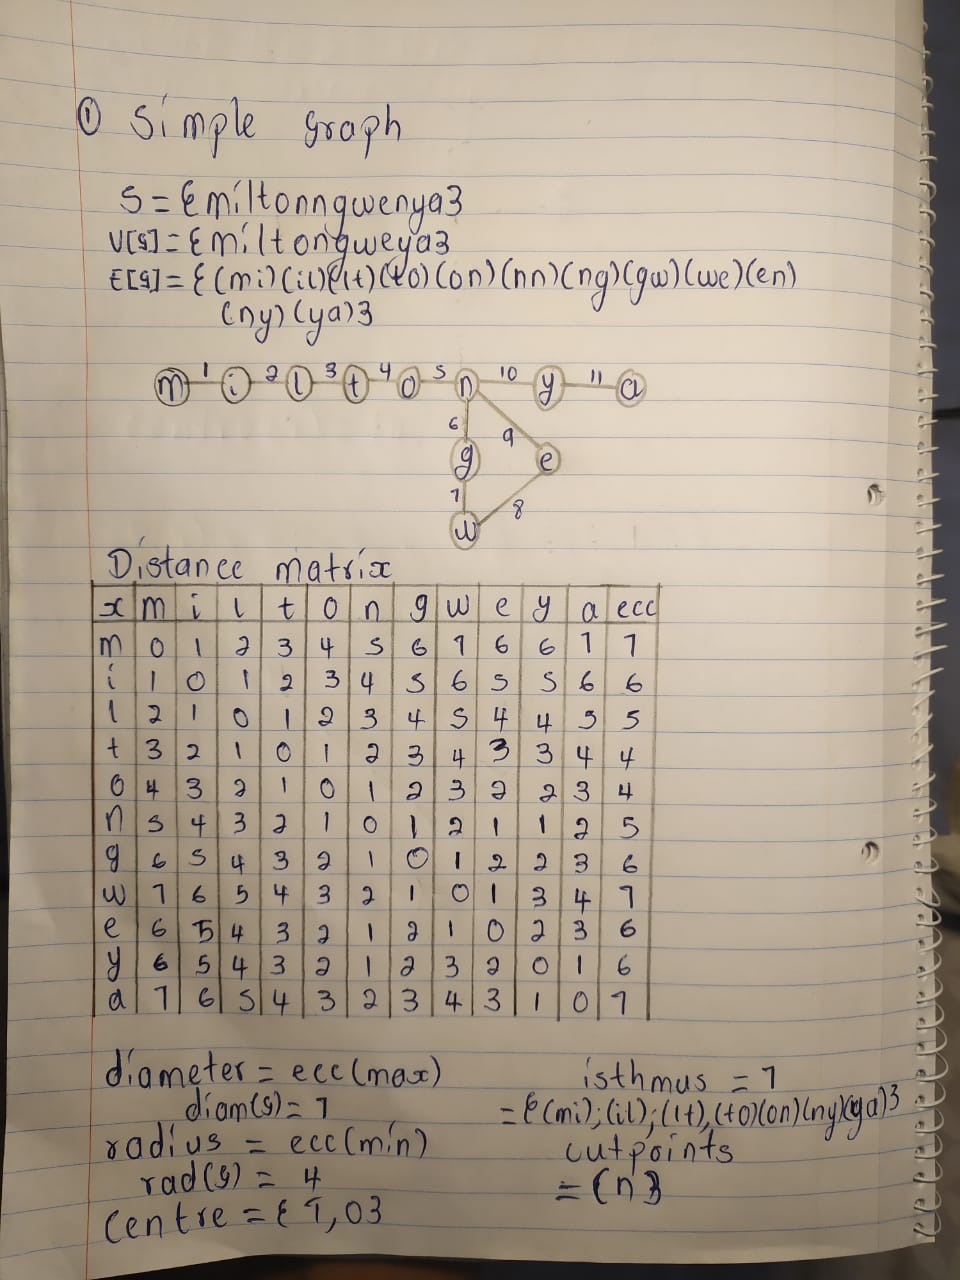 ① Simple graph
S = {miltonngwenya}
V[g] = {miltongweya}
E[g] = {(mi)(il)(lt)(to)(on)(nn)(ng)(gw)(we)(en)
(ny)(ya)}
m 1 i 2 l 3 t 4 o 5 n 10 y 11 a
6 9
g e
7 8
w
Distance matrix
x m i l t o n g w e y a ecc
m 0 1 2 3 4 5 6 7 6 6 7 7
i 1 0 1 2 3 4 5 6 5 5 6 6
l 2 1 0 1 2 3 4 5 4 4 5 5
t 3 2 1 0 1 2 3 4 3 3 4 4
o 4 3 2 1 0 1 2 3 2 2 3 4
n 5 4 3 2 1 0 1 2 1 1 2 5
g 6 5 4 3 2 1 0 1 2 2 3 6
w 7 6 5 4 3 2 1 0 1 3 4 7
e 6 5 4 3 2 1 2 1 0 2 3 6
y 6 5 4 3 2 1 2 3 2 0 1 6
a 7 6 5 4 3 2 3 4 3 1 0 7
diameter = ecc(max)
diam(g) = 7
radius = ecc(min)
rad(g) = 4
Centre = {T,O}
isthmus = 7
= {(mi);(il);(lt),(to)(on)(ny)(ya)}
cutpoints
= {n}